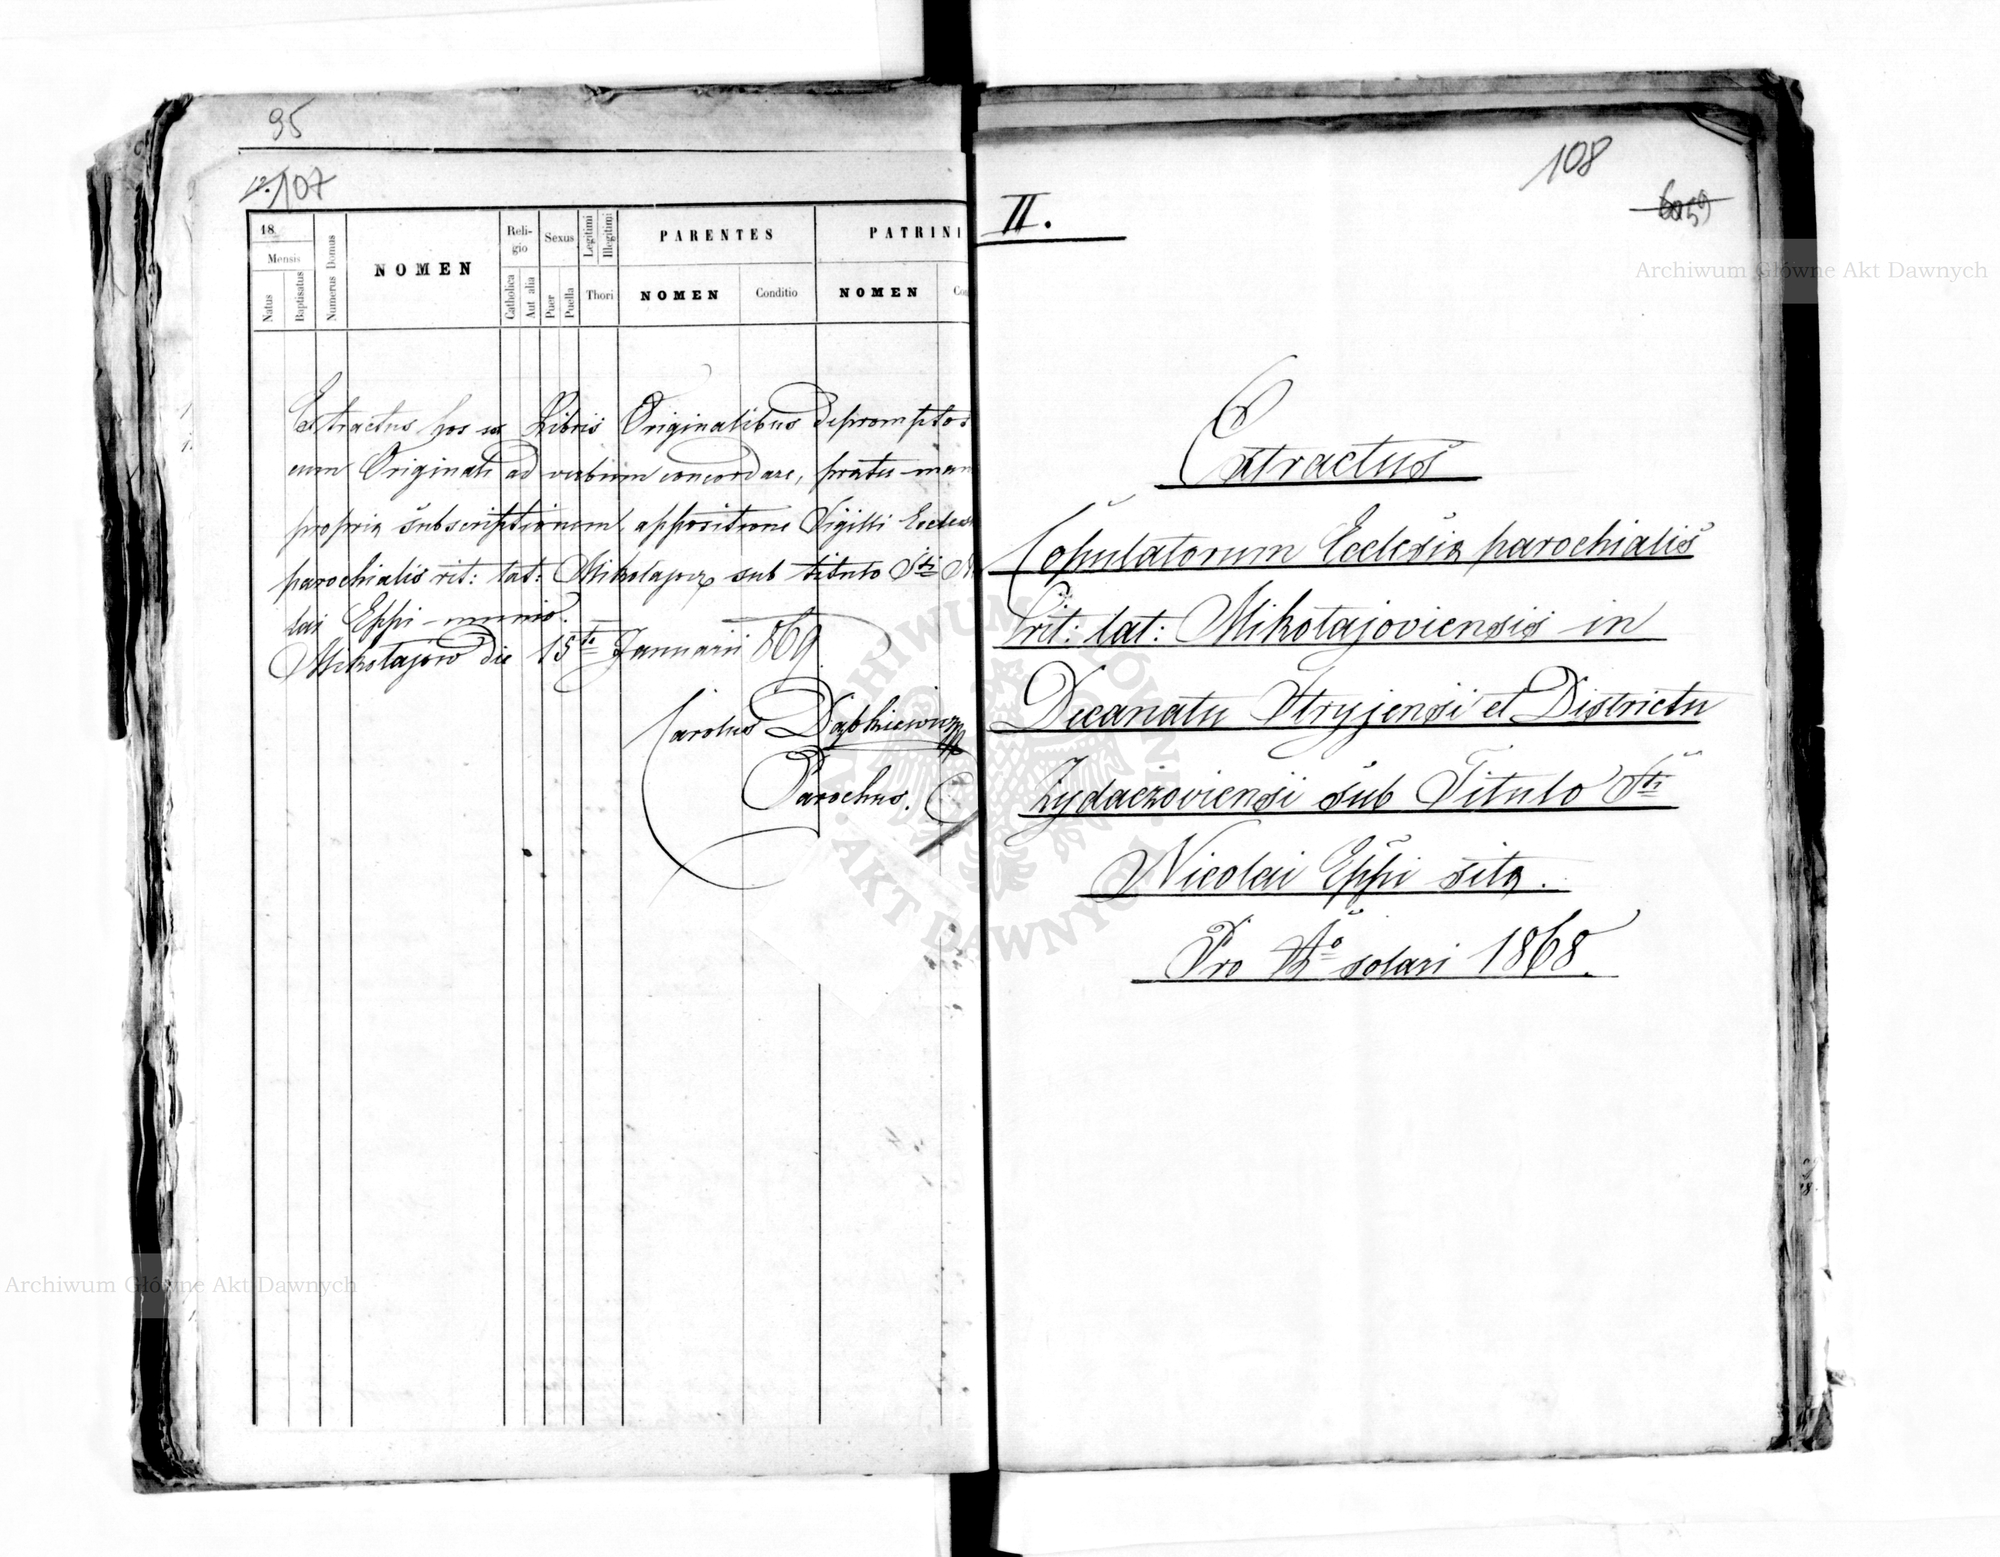 95
107
18
Mensis
Natus
Baptisatus
Numerus Domus
NOMEN
Reli-
gio
Catholica
Aut alia
Sexus
Puer
Puella
Legitimi
Illegitimi
Thori
PARENTES
NOMEN
Conditio
PATRINI
NOMEN
Extractus hos ex Libris Originalibus depromptos
cum Originali ad verbum concordare, praeter man
propria subscriptionem, appositione Sigilli Eccles
parochialis rit: lat: Mikołajov sub titulo Sti
lai Eppi munio.
Mikołajow die 15ta Januarii 869
Carolus Dąbkiewicz
Parochus.
108
II.
Extractus
Copulatorum Ecclesiæ parochialis
rit: lat: Mikołajoviensis in
Decanatu Stryjensi et Districtu
Zydaczoviensi sub Titulo Sti
Nicolai Eppi sitæ.
Pro Ao solari 1868.
Archiwum Główne Akt Dawnych
Archiwum Główne Akt Dawnych
ARCHIWUM GŁÓWNE
AKT DAWNYCH